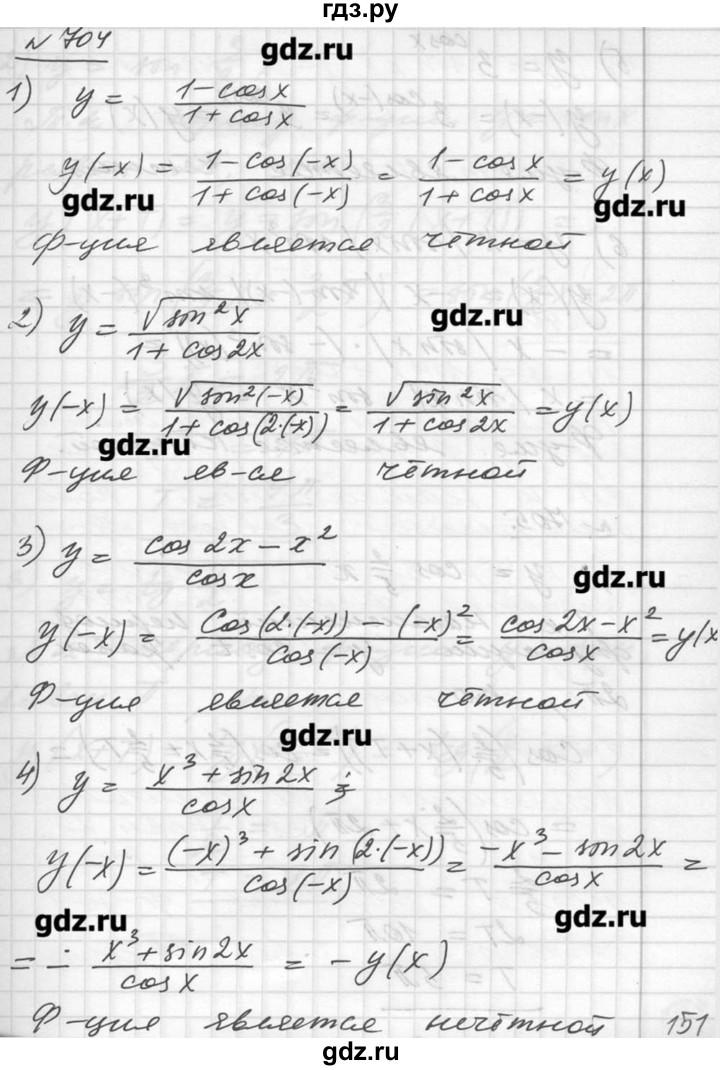 гдз.ру
№ 704
gdz.ru
1) y = (1 - cos x)/(1 + cos x)
y(-x) = (1 - cos(-x))/(1 + cos(-x)) = (1 - cos x)/(1 + cos x) = y(x)
gdz.ru gdz.ru
Ф-ция является чётной
2) y = √(sin²x)/(1 + cos2x)
gdz.ru
y(-x) = √(sin²(-x))/(1 + cos(2·(-x))) = √(sin²x)/(1 + cos2x) = y(x)
gdz.ru
Ф-ция яв-ся чётной
3) y = (cos 2x - x²)/cos x
gdz.ru
y(-x) = (cos(2·(-x)) - (-x)²)/cos(-x) = (cos 2x - x²)/cos x = y(x
Ф-ция является чётной
gdz.ru
4) y = (x³ + sin 2x)/cos x ;
y(-x) = ((-x)³ + sin(2·(-x)))/cos(-x) = (-x³ - sin 2x)/cos x =
gdz.ru gdz.ru
= - (x³ + sin 2x)/cos x = - y(x)
Ф-ция является нечётной 151
gdz.ru